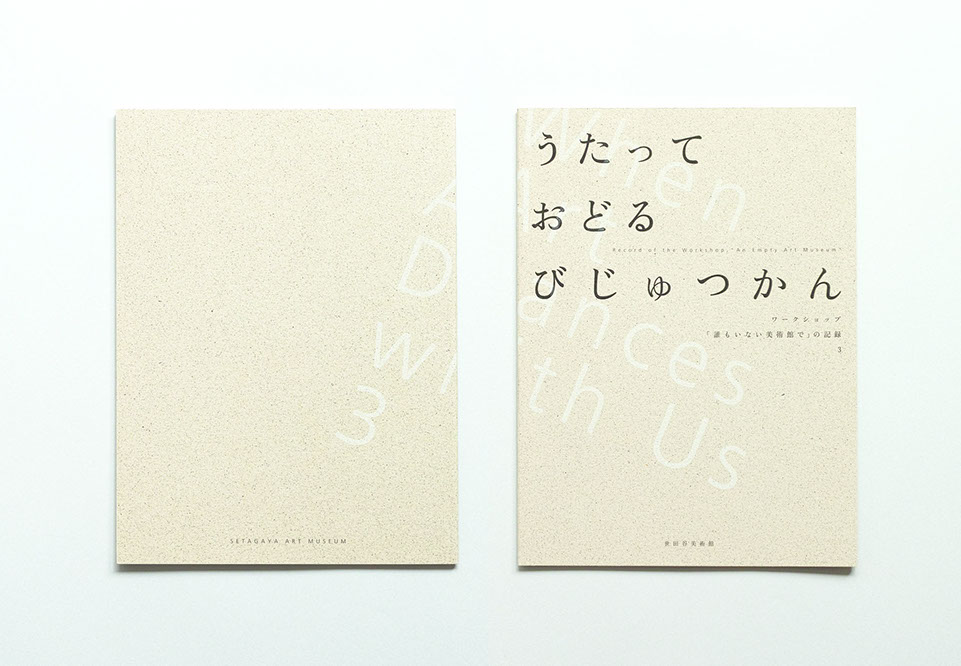 When
Art
Dances
with Us
3
SETAGAYA ART MUSEUM
うたって
おどる
Record of the Workshop, "An Empty Art Museum"
びじゅつかん
ワークショップ
「誰もいない美術館で」の記録
3
世田谷美術館